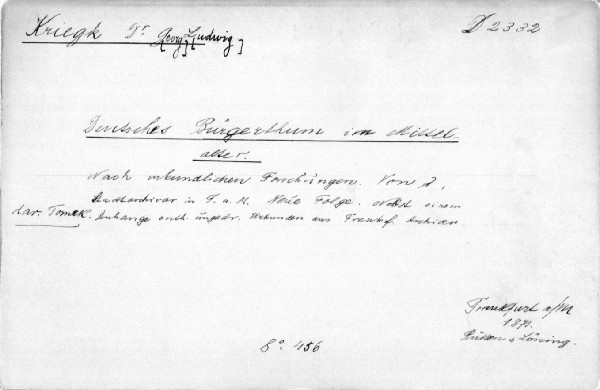 Kriegk Dr G[eorg] L[udwig]
D 2332
Deutsches Bürgerthum im Mittel-
alter.
Nach urkundlichen Forschungen. Von d.
Stadtarchivar in F. a. M. Neue Folge. Nebst einem
dar. Tomek. Anhange enth. ungedr. Urkunden aus Frankf. Archiven
Frankfurt a/M
1871.
Rütten & Löning.
8° 456